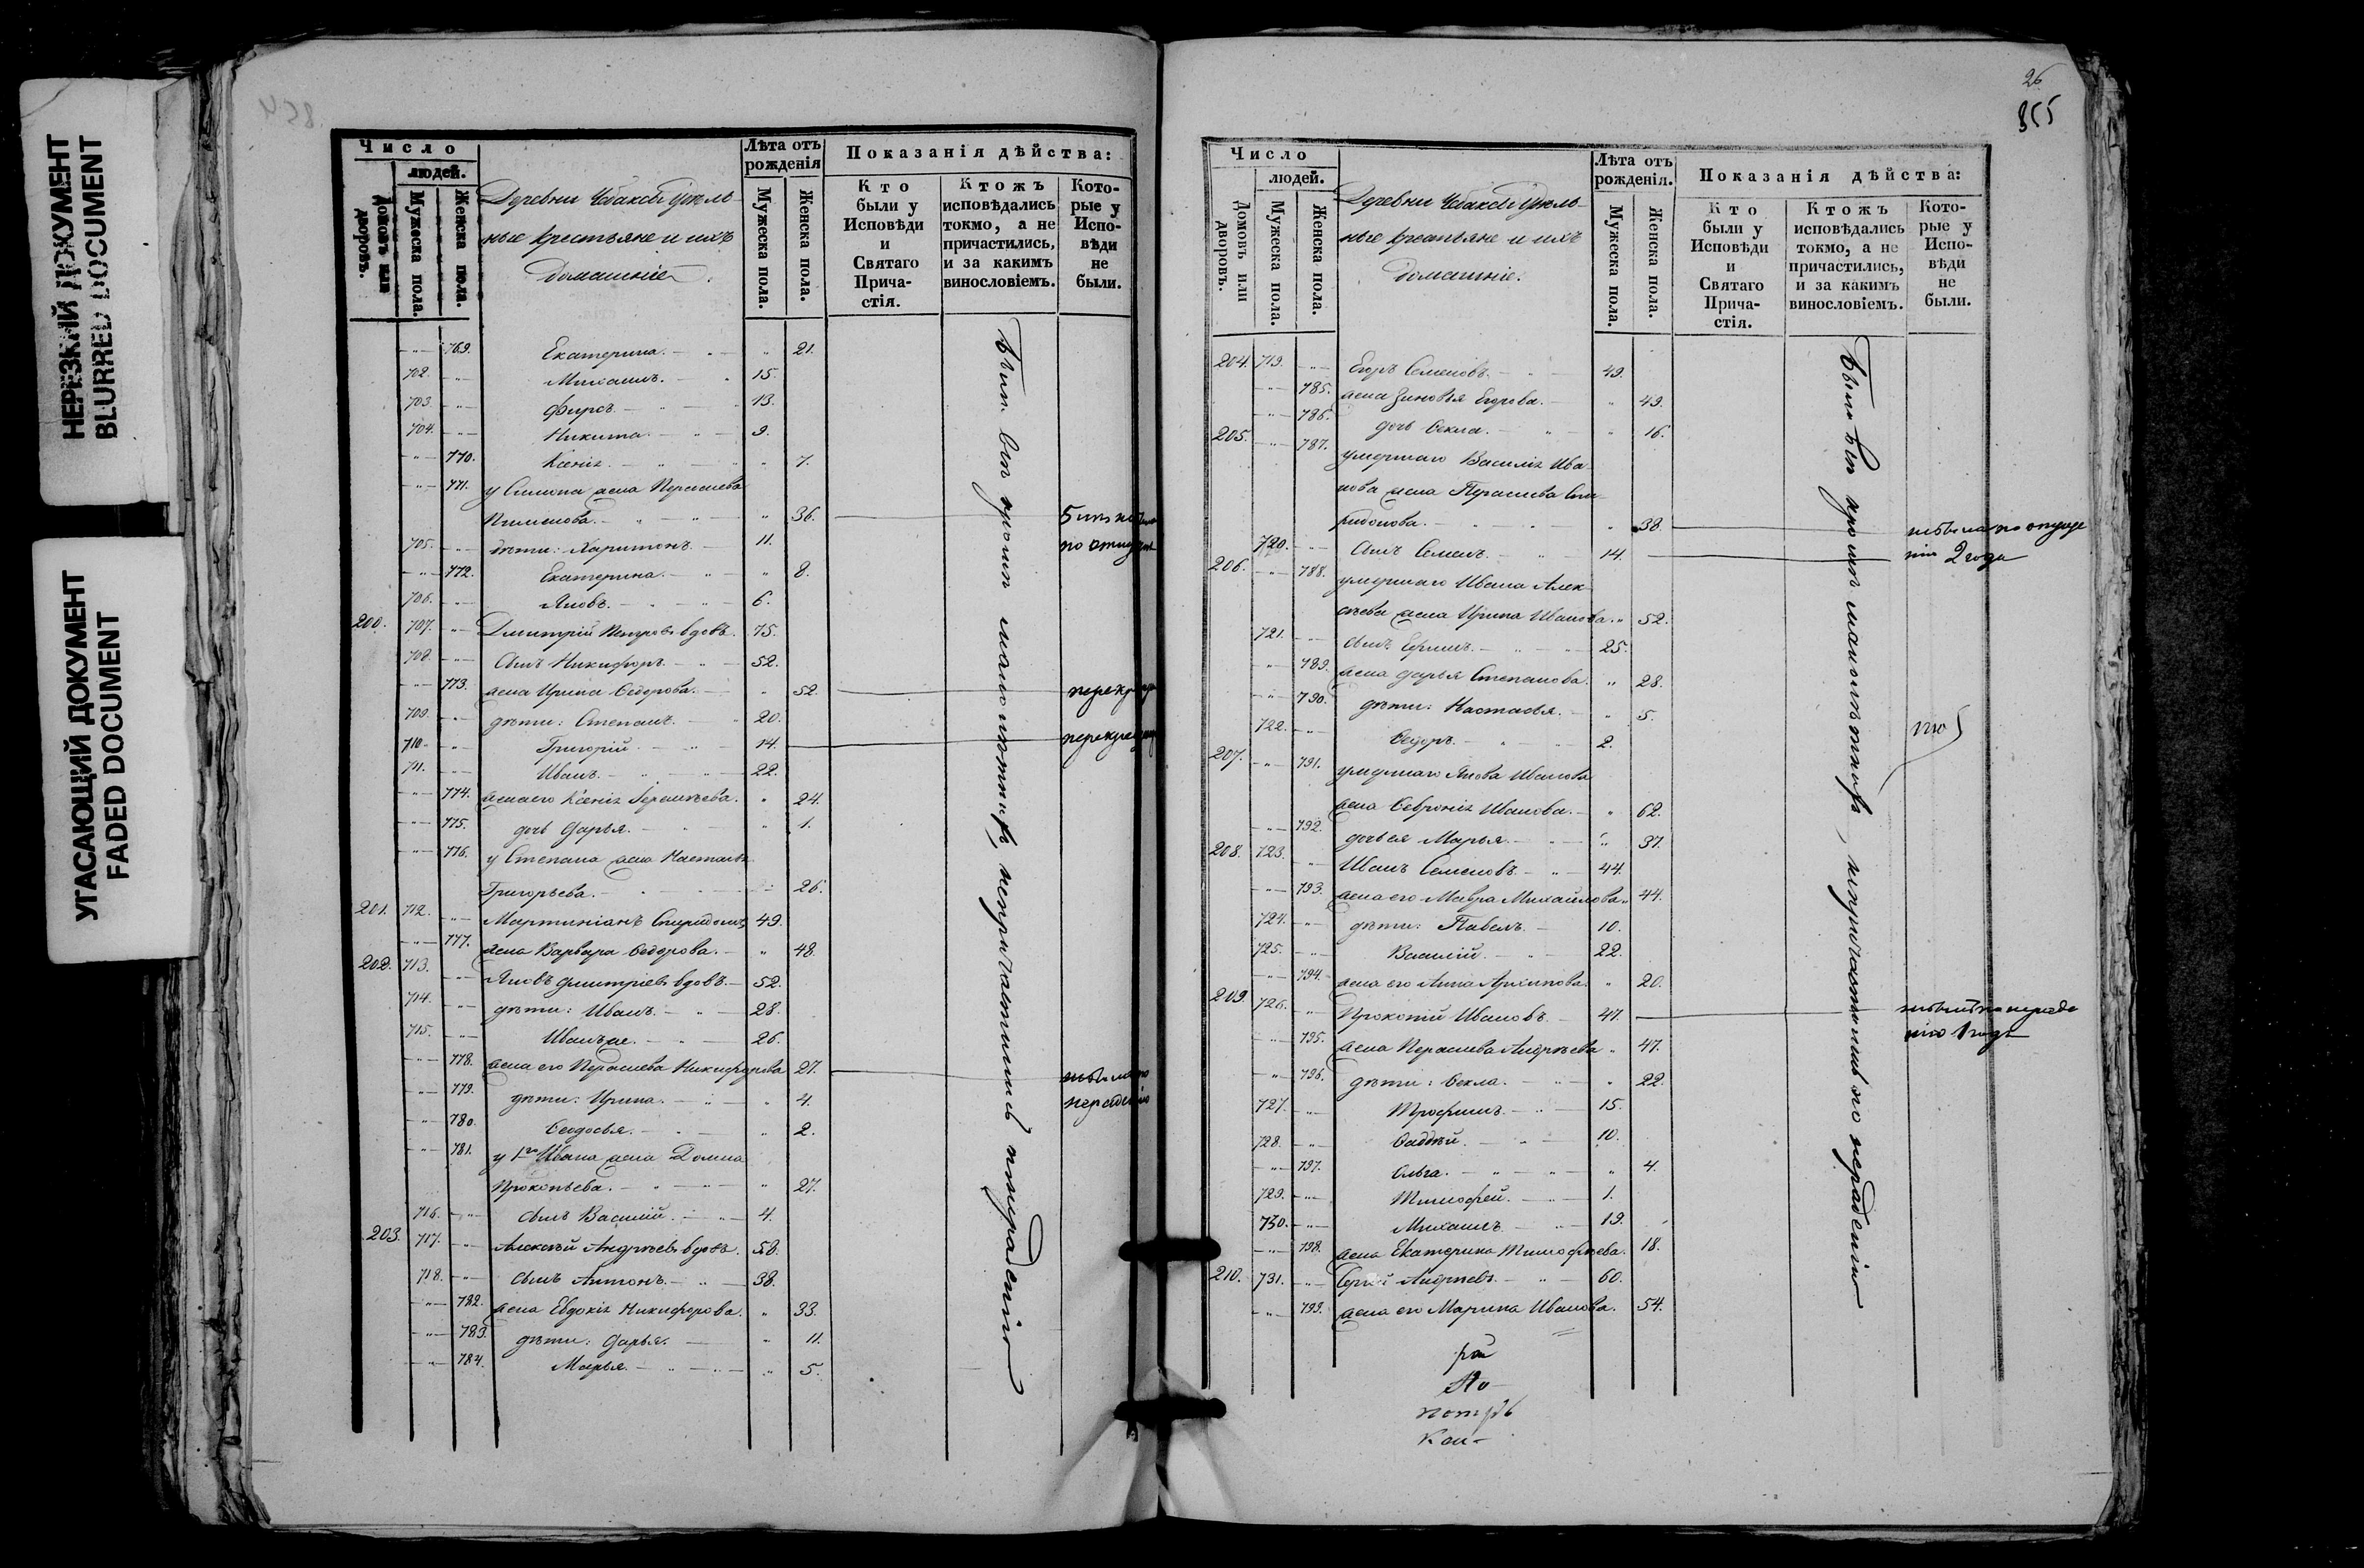 НЕРЕЗКИЙ ДОКУМЕНТ
BLURRED DOCUMENT
УГАСАЮЩИЙ ДОКУМЕНТ
FADED DOCUMENT
Число
людей.
Домовъ или дворовъ.
Мужеска пола.
Женска пола.
Деревни Удѣль-
ные крестьяне и ихъ
домашніе.
Лѣта отъ рожденія
Мужеска пола.
Женска пола.
Показанія дѣйства:
Кто были у Исповѣди и Святаго Прича-стія.
Ктожъ исповѣдались токмо, а не причастились, и за какимъ винословіемъ.
Кото-рые у Испо-вѣди не были.
769. Екатерина. 21.
702. Михаилъ. 15.
703. Фирсъ. 13.
704. Никита. 9.
770. Ксенія. 7.
771. у Симона жена Параскева
Пименова. 36.
705. дѣти: Харитонъ. 11.
772. Екатерина. 8.
706. Яковъ. 6.
200. 707. Димитрій Петровъ вдовъ. 75.
708. сынъ Никифоръ. 52.
773. жена Ирина Ѳедорова. 52
709. дѣти: Степанъ. 20.
710. Григорій. 14.
711. Иванъ. 22.
774. жена его Ксенія 24.
775. дочь Дарья. 1.
776. у Степана жена Настасья
Григорьева. 26.
201. 712. Мартиніанъ Спиридоновъ 49.
777. жена Варвара Ѳедорова. 48.
202. 713. Яковъ Димитріевъ вдовъ. 52.
714. дѣти: Иванъ. 28.
715. Иванъ же. 26.
778. жена его Параскева Никифорова 27. не была по
779. дѣти: Ирина. 4. нерадѣнію
780. Ѳеодосья. 2.
781. у 1го Ивана жена Домна
Прокопьева. 27.
716. сынъ Василій. 4.
203. 717. Алексѣй Андреевъ вдовъ. 58.
718. сынъ Антонъ. 38.
782. жена Евдокія Никифорова. 33.
783. дѣти: Дарья. 11.
784. Марья. 5.
26
355
Число
людей.
Домовъ или дворовъ.
Мужеска пола.
Женска пола.
Деревни Удѣль-
ные крестьяне и ихъ
домашніе.
Лѣта отъ рожденія.
Мужеска пола.
Женска пола.
Показанія дѣйства:
Кто были у Исповѣди и Святаго Прича-стія.
Ктожъ исповѣдались токмо, а не причастились, и за какимъ винословіемъ.
Кото-рые у Испо-вѣди не были.
204. 719. Егоръ Семеновъ. 49.
785. жена Зиновья Егорова. 49.
786. дочь Ѳекла. 16.
205. 787. умершаго Василія Ива-
нова жена Параскева Спи-
ридонова. 38.
720. сынъ Семенъ. 14. 2 года
206. 788. умершаго Ивана Алек-
сѣева жена Ирина Иванова. 52.
721. сынъ 25.
789. жена Дарья Степанова. 28.
790. дѣти: Настасья. 5.
722. Ѳедоръ. 2.
207. 791. умершаго Якова Иванова
жена Ѳевронія Иванова. 62.
792. дочь ея Марья. 37.
208. 723. Иванъ Семеновъ. 44.
793. жена его Мавра Михайлова. 44.
724. дѣти: Павелъ. 10.
725. Василій. 22.
794. жена его Анна Архипова. 20.
209. 726. Прокопій Ивановъ. 47. не былъ по нерадѣ-
795. жена Параскева Андреева 47. нію 1 годъ
796. дѣти: Ѳекла. 22.
727. Трофимъ. 15.
728. Ѳаддей. 10.
797. Ольга. 4.
729. Тимофей. 1.
730. Михаилъ 19.
798. жена Екатерина Тимофеева. 18.
210. 731. Сергѣй Андреевъ. 60.
799. жена его Марина Иванова. 54.